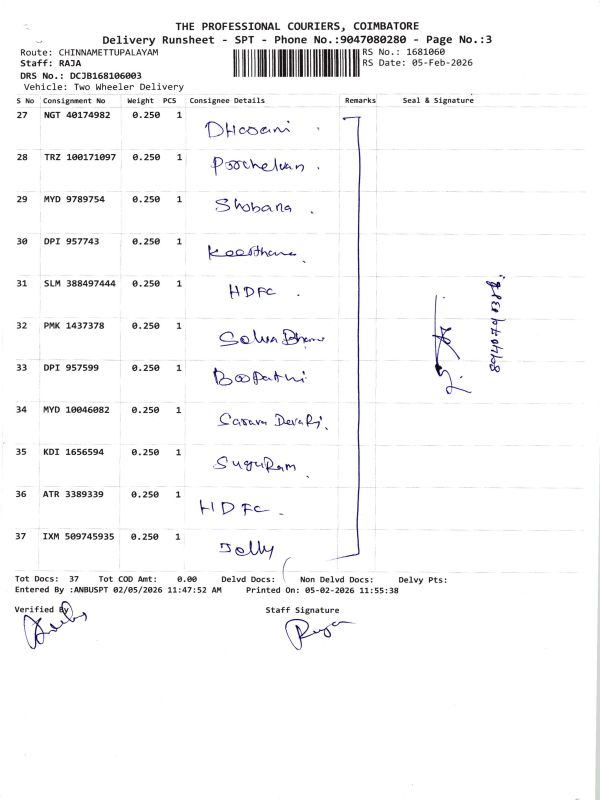 THE PROFESSIONAL COURIERS, COIMBATORE
Delivery Runsheet - SPT - Phone No.:9047080280 - Page No.:3
Route: CHINNAMETTUPALAYAM RS No.: 1681060
Staff: RAJA RS Date: 05-Feb-2026
DRS No.: DCJB168106003
Vehicle: Two Wheeler Delivery
S No Consignment No Weight PCS Consignee Details Remarks Seal & Signature
27 NGT 40174982 0.250 1
28 TRZ 100171097 0.250 1
29 MYD 9789754 0.250 1 Shobana
30 DPI 957743 0.250 1
31 SLM 388497444 0.250 1 HDFC
32 PMK 1437378 0.250 1
33 DPI 957599 0.250 1 Boopathi
34 MYD 10046082 0.250 1
35 KDI 1656594 0.250 1 SuguRam
36 ATR 3389339 0.250 1 HDFC
37 IXM 509745935 0.250 1 Jolly
Tot Docs: 37 Tot COD Amt: 0.00 Delvd Docs: Non Delvd Docs: Delvy Pts:
Entered By :ANBUSPT 02/05/2026 11:47:52 AM Printed On: 05-02-2026 11:55:38
Verified By Staff Signature